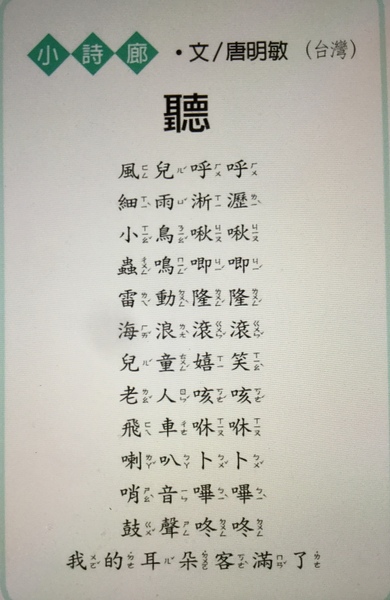 小詩廊 •文/唐明敏（台灣）
聽
風兒呼呼
細雨淅瀝
小鳥啾啾
蟲鳴唧唧
雷動隆隆
海浪滾滾
兒童嬉笑
老人咳咳
飛車咻咻
喇叭卜卜
哨音嗶嗶
鼓聲咚咚
我的耳朵客滿了